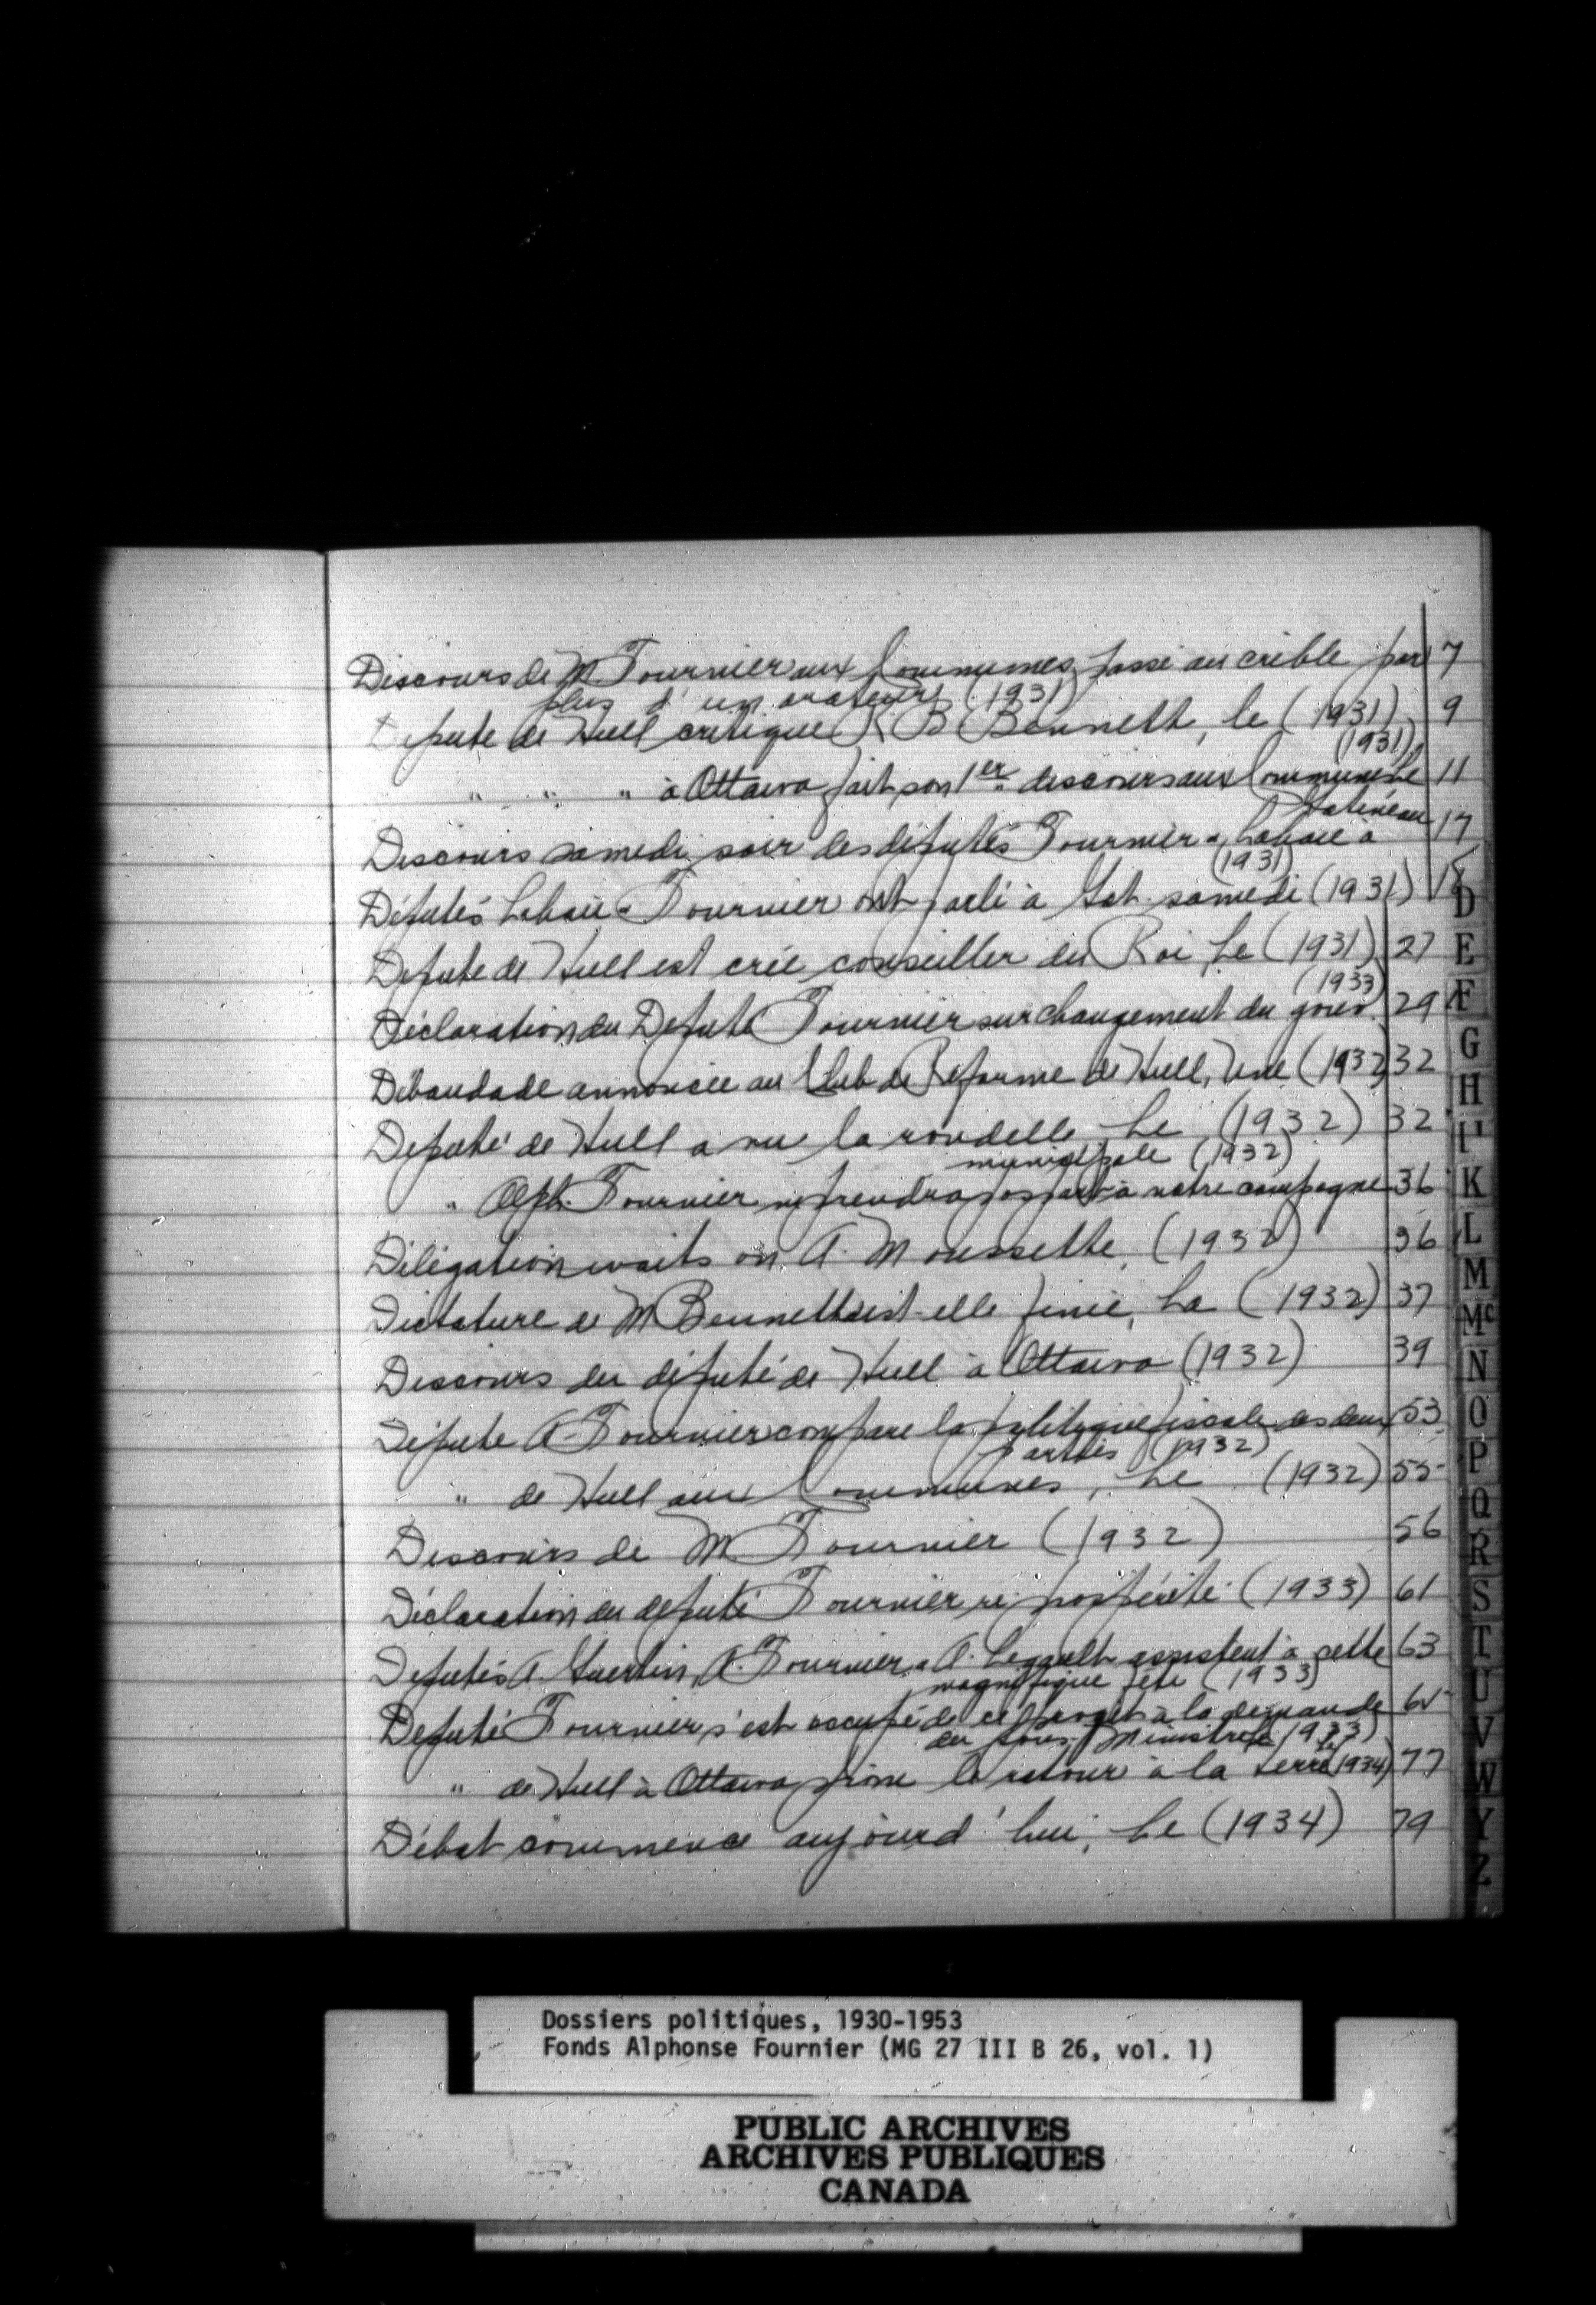 Discours de M. Fournier aux Communes passé au crible par 7
plus d'un orateurs (1931)
Député de Hull critique R B Bennett, le (1931) 9
(1931)
" " " à Ottawa fait son 1er discours aux Communes Le 11
Gatineau
Discours samedi soir des députés Fournier & Lahaie à 17
(1931)
Députés Lahaie & Fournier ont parlé à Gat. samedi (1931) 18
Député de Hull est créé conseiller du Roi, Le (1931) 27
(1933)
Déclaration du Député Fournier sur changement du gouv. 29
Débandade annoncée au Club de Réforme de Hull, Une (1932) 32
Député de Hull a vu la rondelle, Le (1932) 32
municipale (1932)
" Alph. Fournier ne prendra pas part à notre campagne 36
Délégation waits on A. Moussette, (1932) 36
Dictature de M Bennett est-elle finie, La (1932) 37
Discours du député de Hull à Ottawa (1932) 39
Député A. Fournier compare la politique fiscale des deux 53
partis (1932)
" de Hull aux Communes, Le (1932) 55
Discours de M Fournier (1932) 56
Déclaration du député Fournier re prospérité (1933) 61
Députés A. Guertin, A. Fournier & A. Legault assistent à cette 63
magnifique fête (1933)
Député Fournier s'est occupé de ce projet à la demande 65
du sous-Ministre (1933)
" de Hull à Ottawa prône le retour à la terre Le (1934) 77
Débat commence aujourd'hui, Le (1934) 79
D
E
F
G
H
I
K
L
M
Mc
N
O
P
Q
R
S
T
U
V
W
Y
Z
Dossiers politiques, 1930-1953
Fonds Alphonse Fournier (MG 27 III B 26, vol. 1)
PUBLIC ARCHIVES
ARCHIVES PUBLIQUES
CANADA